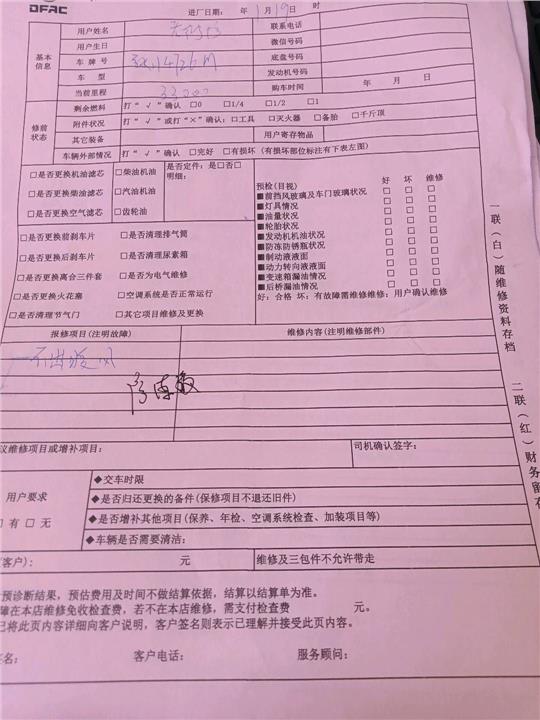 DFAC
进厂日期: 年 1月19日 时
基本信息
用户姓名 联系电话
用户生日 微信号码
车牌号 底盘号码
车型 发动机号码
当前里程 33000 购车时间 年 月 日
修前状态
剩余燃料 打“√”确认 □0 □1/4 □1/2 □1
附件状况 打“√”或打“×”确认:□工具 □灭火器 □备胎 □千斤顶
其它装备 用户寄存物品
车辆外部情况 打“√”确认 □完好 □有损坏(有损坏部位标注有下表左图)
□是否更换机油滤芯 □柴油机油
□是否更换柴油滤芯 □汽油机油
□是否更换空气滤芯 □齿轮油
是否定件: 是□否□
明细:
□是否更换前刹车片 □是否清理排气筒
□是否更换后刹车片 □是否清理尿素箱
□是否更换离合三件套 □是否为电气维修
□是否更换火花塞 □空调系统是否正常运行
□是否清理节气门 □其它项目维修及更换
预检(目视) 好 坏 维修
■前挡风玻璃及车门玻璃状况 □ □ □
■灯具情况 □ □ □
■油量状况 □ □ □
■轮胎状况 □ □ □
■发动机机油状况 □ □ □
■防冻防锈瓶状况 □ □ □
■制动液液面 □ □ □
■动力转向液液面 □ □ □
■变速箱漏油情况 □ □ □
■后桥漏油情况 □ □ □
好: 合格 坏: 有故障需维修维修: 用户确认维修
报修项目(注明故障) 维修内容(注明维修部件)
一不出暖风
议维修项目或增补项目: 司机确认签字:
用户要求
□有 □无
◆交车时限
◆是否归还更换的备件(保修项目不退还旧件)
◆是否增补其他项目(保养、年检、空调系统检查、加装项目等)
◆车辆是否需要清洁:
(客户): 元 维修及三包件不允许带走
预诊断结果, 预估费用及时间不做结算依据, 结算以结算单为准。
障在本店维修免收检查费, 若不在本店维修, 需支付检查费 元。
已将此页内容详细向客户说明, 客户签名则表示已理解并接受此页内容。
签名: 客户电话: 服务顾问:
一联(白)随维修资料存档
二联(红)财务留存